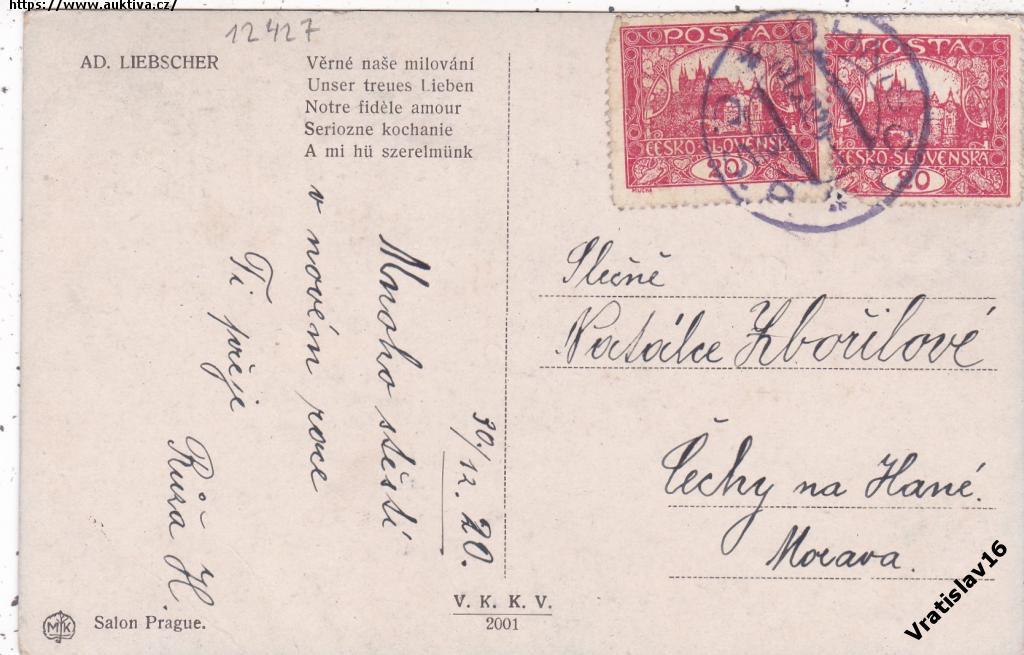 https://www.auktiva.cz/
12427
AD. LIEBSCHER
Věrné naše milování
Unser treues Lieben
Notre fidèle amour
Seriozne kochanie
A mi hü szerelmünk
POSTA
ČESKO-SLOVENSKÁ
20
MUCHA
POSTA
ČESKO-SLOVENSKÁ
20
Mnoho štěstí
v novém roce
Ti přeje
Růža H.
30./12. 20.
Slečně
Natálce Zbořilové
Čechy na Hané.
Morava.
V. K. K. V.
2001
MK
Salon Prague.
Vratislav16